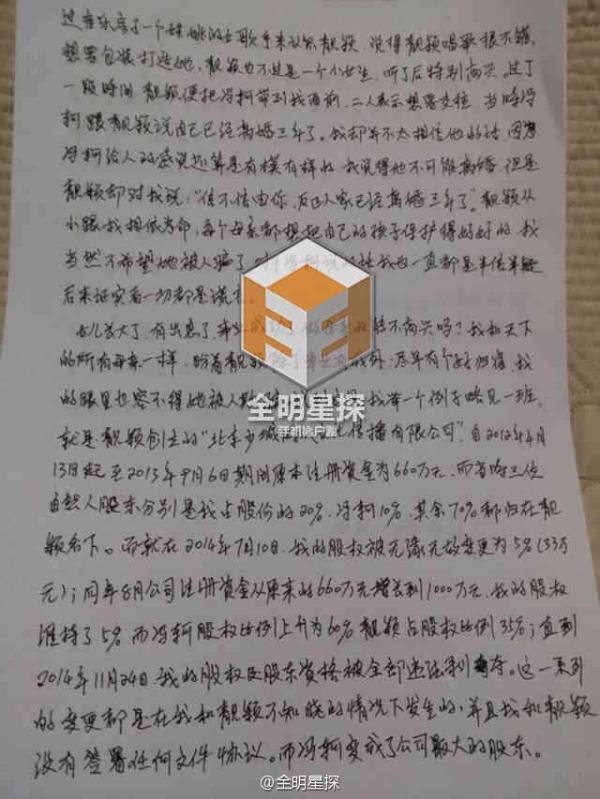 过音乐客了一个姓姚的女歌手来认识靓颖,说得靓颖唱歌很不错,
想要包装打造她,靓颖也不过是一个小女生,听了后特别高兴,过了
一段时间靓颖便把冯柯带到我面前,二人表示想要交往,当时冯
柯跟靓颖说自己已经离婚三年了。我却并不太相信他的话,因为
冯柯给人的感觉还算是有模有样的,我觉得他不可能离婚,但是
靓颖却对我说:“信不信由你,反正人家已经离婚三年了”。靓颖从
小跟我相依为命,每个母亲都想把自己的孩子保护得好好的,我
当然不希望她被人骗了,对于冯柯说的话我也一直都是半信半疑
后来证实着一切都是谎言。
女儿长大了,有出息了,事业成功了,做母亲的能不高兴吗?我和天下
的所有母亲一样,盼着靓颖除了事业有成外,尽早有个好归宿,我
的眼里也容不得她被人欺 我举一个例子略见一班,
就是靓颖创立的“北京少城 文化传播有限公司”,自2012年4月
13日起至2013年9月6日期间原本注册资金为660万元,而当时三位
自然人股东分别是我占股份的20%,冯柯10%,其余70%都归在靓
颖名下。而就在2014年7月10日,我的股权被无缘无故变更为5%(33万
元);同年8月公司注册资金从原来的660万元增长到1000万元,我的股权
维持了5%而冯柯股权比例上升为60%靓颖占股权比例35%;直到
2014年11月24日我的股权及股东资格被全部违法剥夺。这一系列
的变更都是在我和靓颖不知晓的情况下发生的,并且我和靓颖
没有签署任何文件协议。而冯柯变成了公司最大的股东。
全明星探
手机客户端
@全明星探